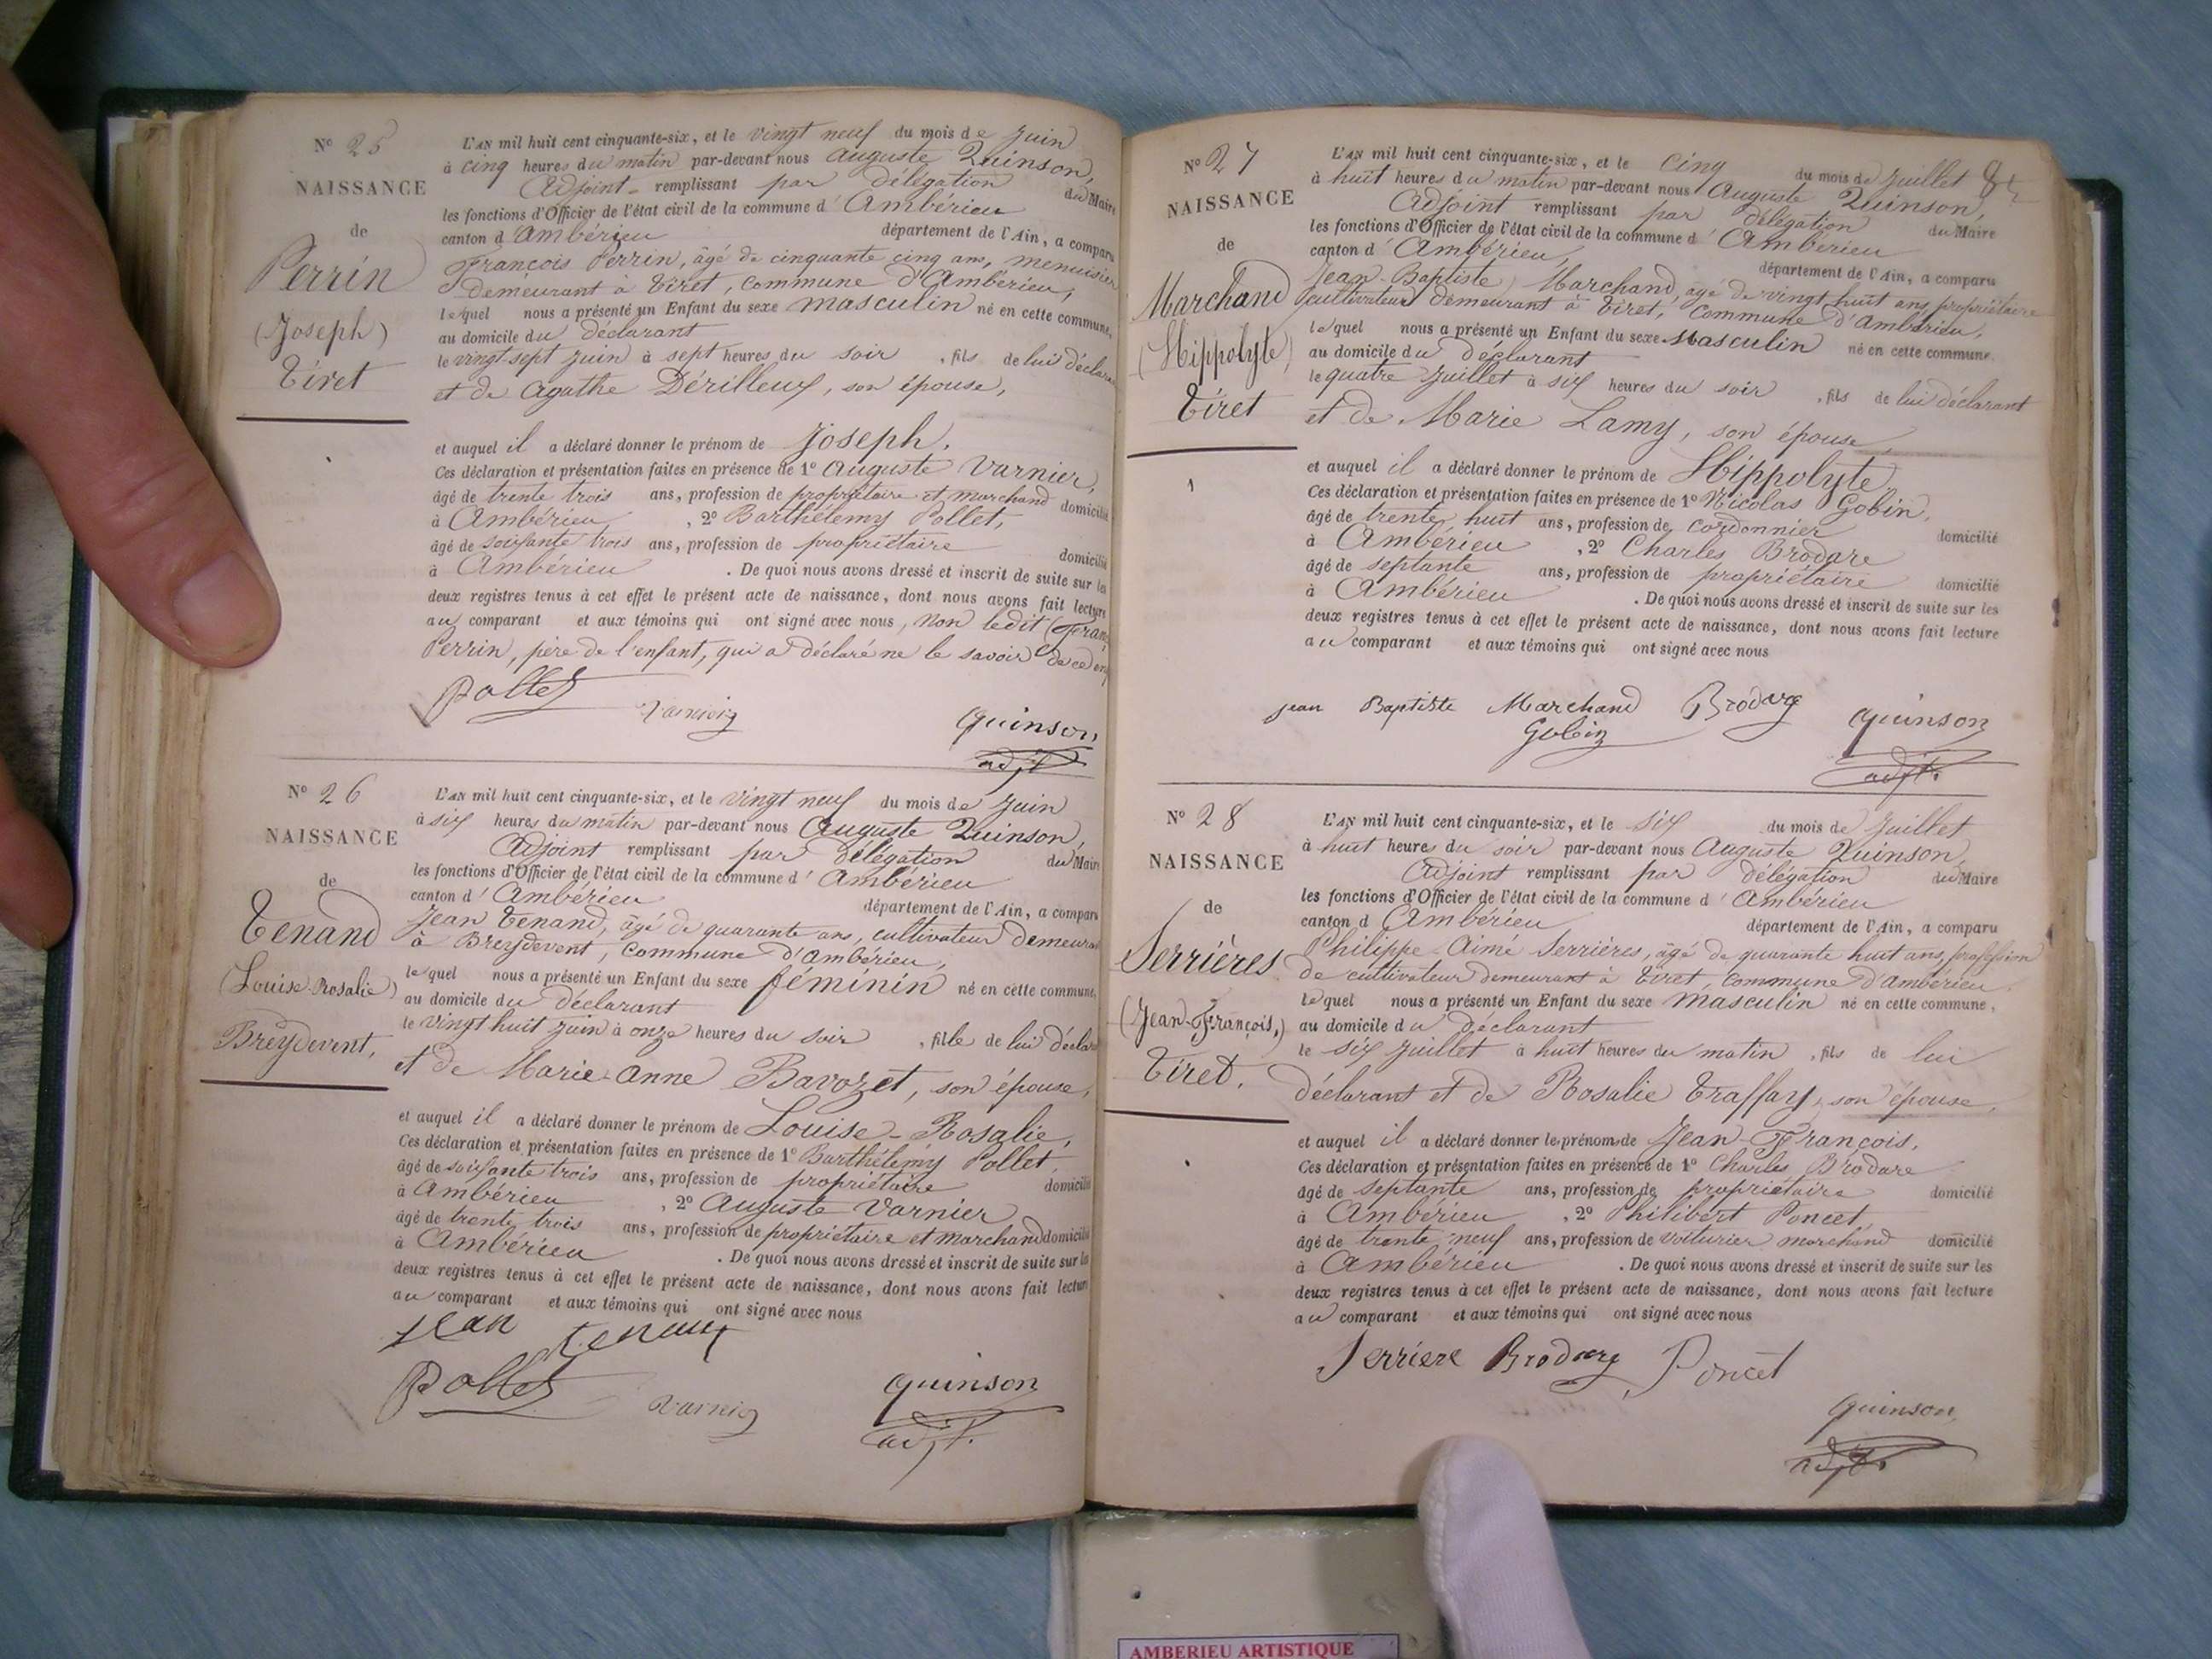 N° 25
NAISSANCE
de
Perrin
(Joseph)
Tiret
L'AN mil huit cent cinquante-six, et le vingt neuf du mois de Juin
à cinq heures du matin par-devant nous Auguste Quinson,
Adjoint remplissant par délégation du Maire
les fonctions d'Officier de l'état civil de la commune d'Ambérieu
canton d'Ambérieu département de l'Ain, a comparu
François Perrin, âgé de cinquante cinq ans, menuisier
demeurant à Tiret, commune d'Ambérieu,
lequel nous a présenté un Enfant du sexe masculin né en cette commune,
au domicile du déclarant
le vingt sept juin à sept heures du soir, fils de lui déclara
et de Agathe Dérilleux, son épouse,
et auquel il a déclaré donner le prénom de Joseph.
Ces déclaration et présentation faites en présence de 1° Auguste Varnier,
âgé de trente trois ans, profession de propriétaire et marchand domicilié
à Ambérieu, 2° Barthélemy Pollet,
âgé de soixante trois ans, profession de propriétaire domicilié
à Ambérieu. De quoi nous avons dressé et inscrit de suite sur les
deux registres tenus à cet effet le présent acte de naissance, dont nous avons fait lecture
au comparant et aux témoins qui ont signé avec nous, non ledit Fran
Perrin, père de l'enfant, qui a déclaré ne le savoir de ce en
Pollet Varnier quinson
adjt
N° 26
NAISSANCE
de
Tenand
(Louise-Rosalie)
Breydevent,
L'AN mil huit cent cinquante-six, et le vingt neuf du mois de Juin
à six heures du matin par-devant nous Auguste Quinson,
Adjoint remplissant par délégation du Maire
les fonctions d'Officier de l'état civil de la commune d'Ambérieu
canton d'Ambérieu département de l'Ain, a comparu
Jean Tenand, âgé de quarante ans, cultivateur demeura
à Breydevent, commune d'Ambérieu,
lequel nous a présenté un Enfant du sexe féminin né en cette commune,
au domicile du déclarant
le vingt huit juin à onze heures du soir, fille de lui déclar
et de Marie-Anne Bavozet, son épouse,
et auquel il a déclaré donner le prénom de Louise-Rosalie,
Ces déclaration et présentation faites en présence de 1° Barthélemy Pollet,
âgé de soixante trois ans, profession de propriétaire domicilié
à Ambérieu, 2° Auguste Varnier
âgé de trente trois ans, profession de propriétaire et marchand domicilié
à Ambérieu. De quoi nous avons dressé et inscrit de suite sur les
deux registres tenus à cet effet le présent acte de naissance, dont nous avons fait lecture
au comparant et aux témoins qui ont signé avec nous
Jean tenand
Pollet Varnier quinson
adjt.
N° 27
NAISSANCE
de
Marchand
(Hippolyte)
Tiret
L'AN mil huit cent cinquante-six, et le cinq du mois de Juillet
à huit heures du matin par-devant nous Auguste Quinson,
Adjoint remplissant par délégation du Maire
les fonctions d'Officier de l'état civil de la commune d'Ambérieu
canton d'Ambérieu, département de l'Ain, a comparu
Jean-Baptiste Marchand, âgé de vingt huit ans, propriétaire
cultivateur demeurant à Tiret, commune d'Ambérieu,
lequel nous a présenté un Enfant du sexe Masculin né en cette commune
au domicile du déclarant
le quatre Juillet à six heures du soir, fils de lui déclarant
et de Marie Lamy, son épouse,
et auquel il a déclaré donner le prénom de Hippolyte.
Ces déclaration et présentation faites en présence de 1° Nicolas Gobin,
âgé de trente huit ans, profession de cordonnier domicilié
à Ambérieu, 2° Charles Brodare
âgé de septante ans, profession de propriétaire domicilié
à Ambérieu. De quoi nous avons dressé et inscrit de suite sur les
deux registres tenus à cet effet le présent acte de naissance, dont nous avons fait lecture
au comparant et aux témoins qui ont signé avec nous
jean Baptiste Marchand Brodare quinson
Gobin adjt.
N° 28
NAISSANCE
de
Serrières
(Jean-François,)
Tiret.
L'AN mil huit cent cinquante-six, et le six du mois de Juillet
à huit heures du soir par-devant nous Auguste Quinson,
Adjoint remplissant par délégation du Maire
les fonctions d'Officier de l'état civil de la commune d'Ambérieu
canton d'Ambérieu département de l'Ain, a comparu
Philippe-Aimé Serrières, âgé de quarante huit ans, profession
de cultivateur demeurant à Tiret, commune d'Ambérieu.
lequel nous a présenté un Enfant du sexe masculin né en cette commune,
au domicile du déclarant
le six Juillet à huit heures du matin, fils de lui
déclarant et de Rosalie Traffay, son épouse,
et auquel il a déclaré donner les prénoms de Jean-François.
Ces déclaration et présentation faites en présence de 1° Charles Brodare
âgé de septante ans, profession de propriétaire domicilié
à Ambérieu, 2° Philibert Poncet,
âgé de trente neuf ans, profession de voiturier marchand domicilié
à Ambérieu. De quoi nous avons dressé et inscrit de suite sur les
deux registres tenus à cet effet le présent acte de naissance, dont nous avons fait lecture
au comparant et aux témoins qui ont signé avec nous
Serriere Brodare Poncet
quinson
adjt.
AMBERIEU ARTISTIQUE